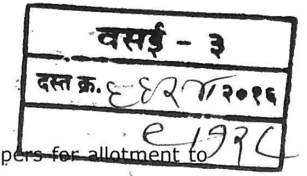 वसई - ३
दस्त क्र. ६६२४/२०१६
९/३८
pers for allotment to